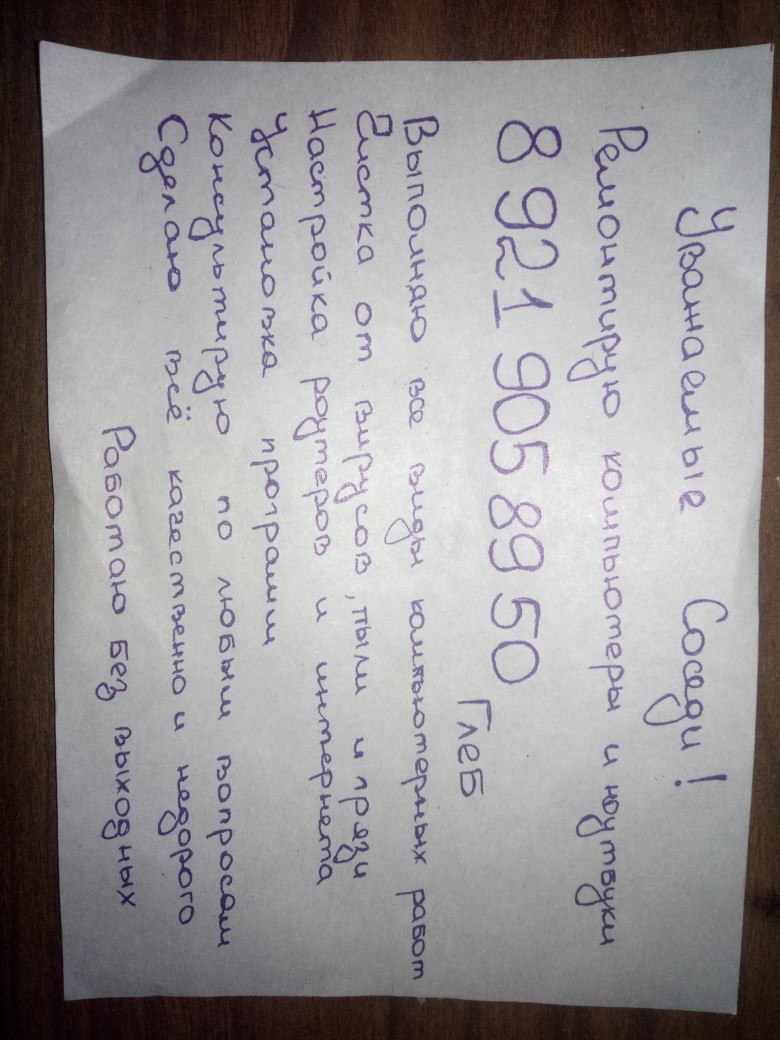 Уважаемые Соседи!
Ремонтирую компьютеры и ноутбуки
8 921 905 89 50
Глеб
Выполняю все виды компьютерных работ
Чистка от вирусов, пыли и грязи
Настройка роутеров и интернета
Установка программ
Консультирую по любым вопросам
Сделаю всё качественно и недорого
Работаю без выходных